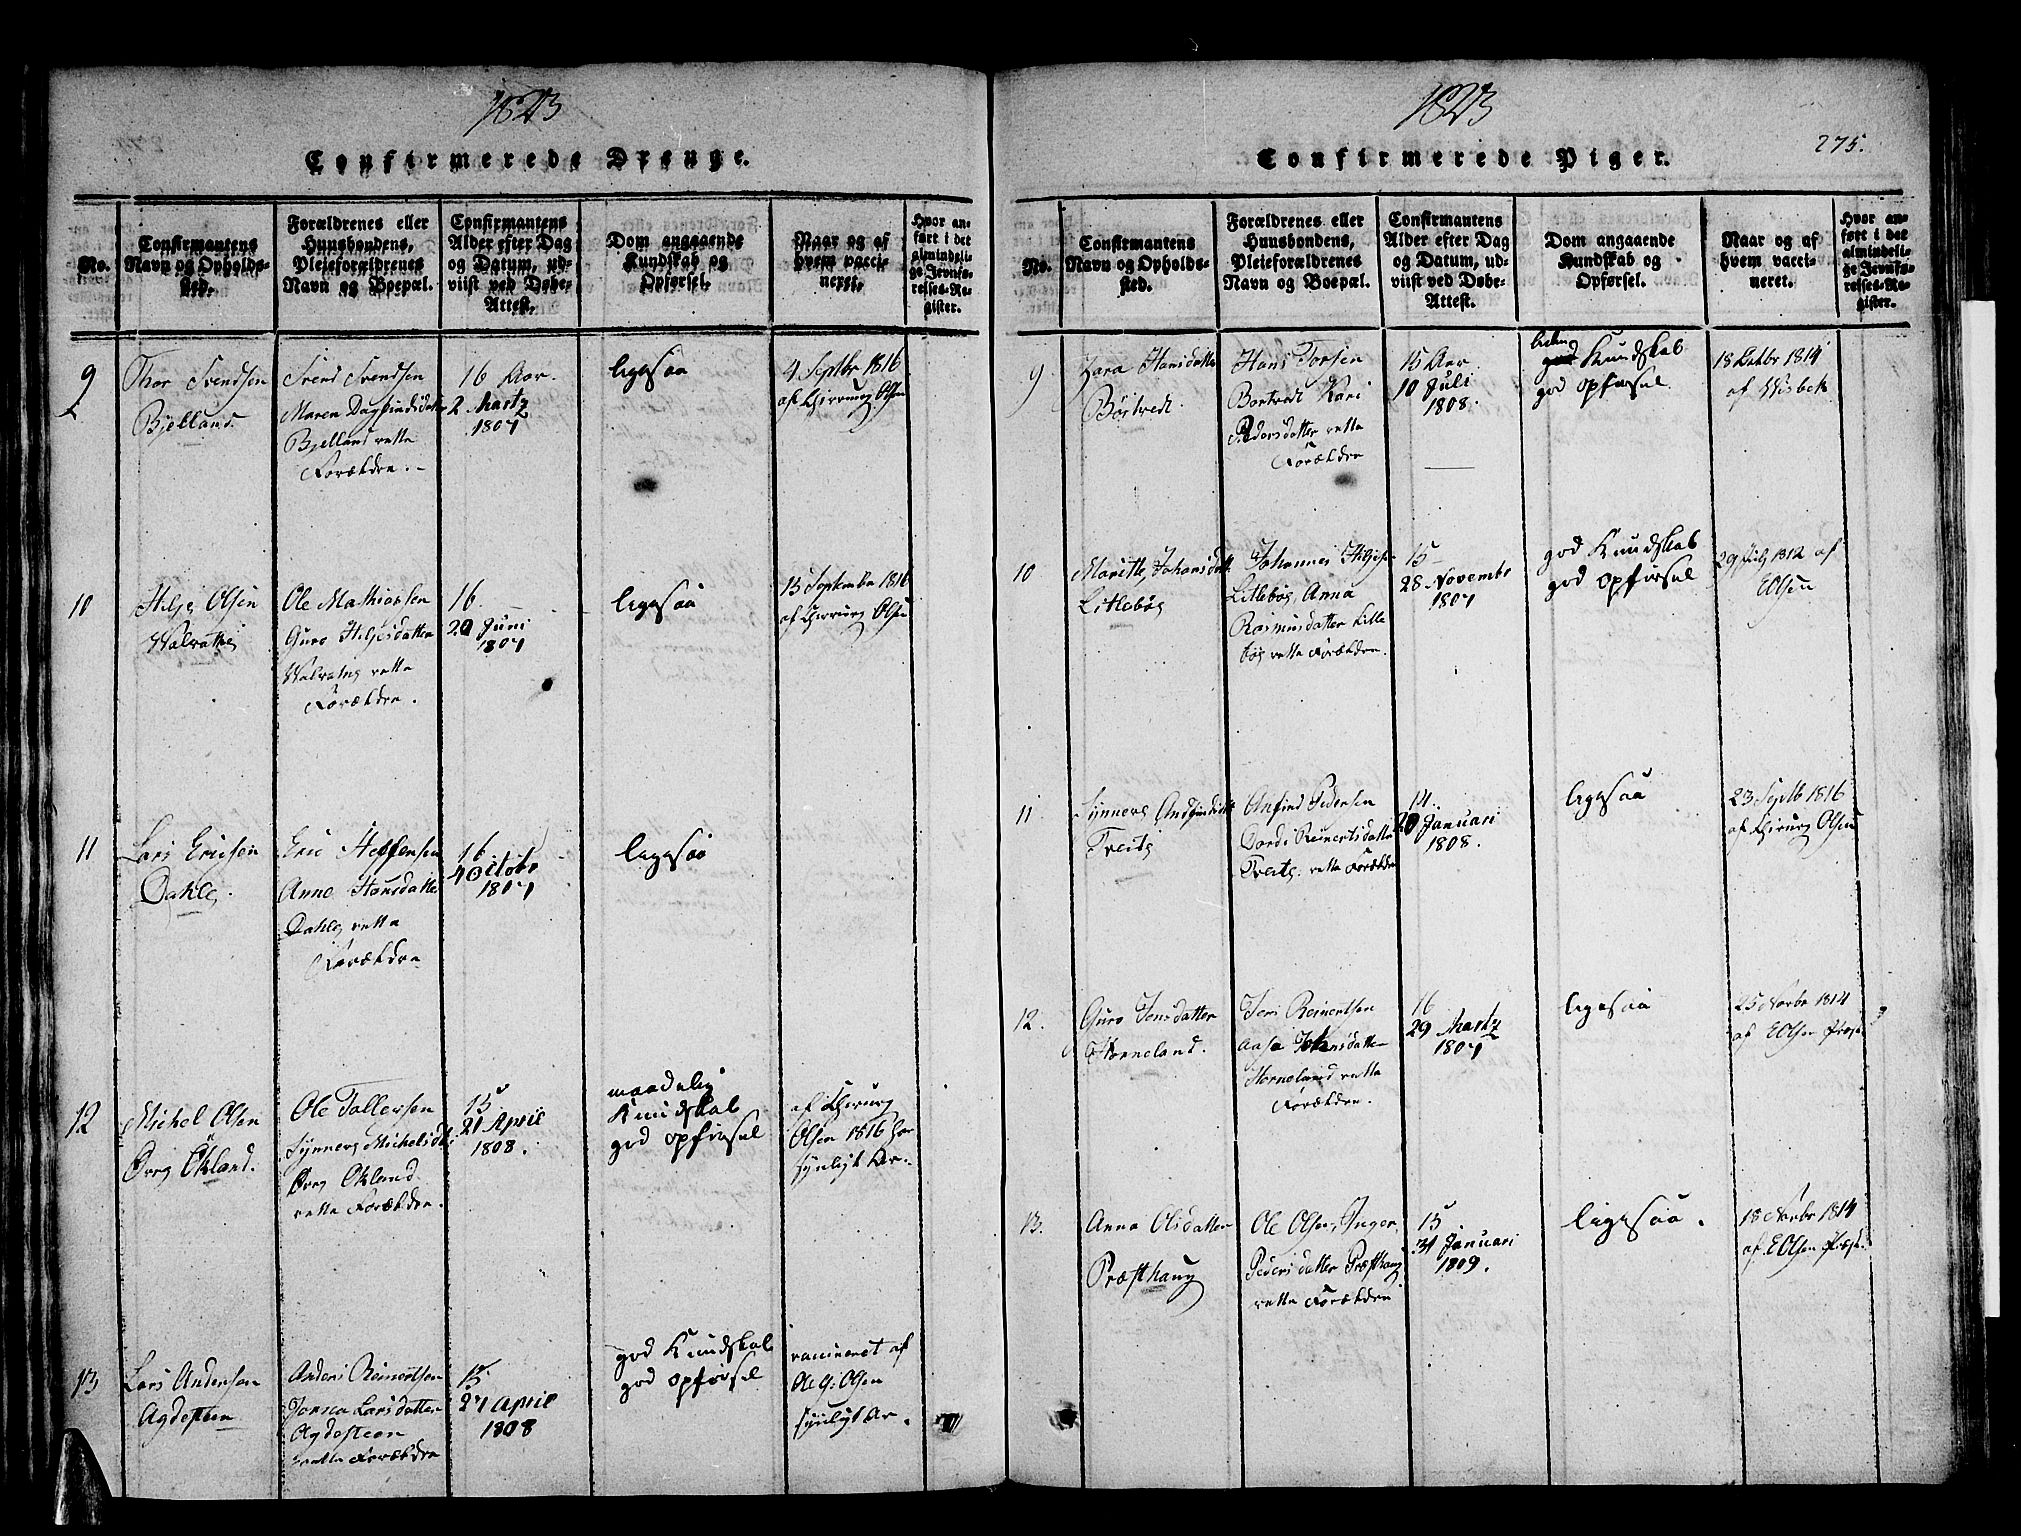 1823
Confirmerede Drenge.
No.
Confirmantens
Navn og Opholds-
sted.
Forældrenes eller
Huusbondens,
Pleieforældrenes
Navn og Boepæl.
Confirmantens
Alder efter Dag
og Datum, ud-
viist ved Døbe-
Attest.
Dom angaaende
Kundskab og
Opførsel.
Naar og af
hvem vacci-
neret.
Hvor an-
ført i det
almindeli-
ge Jevnfø-
relses-Re-
gister.
9
Thor Svendsen
Bjelland.
Svend Svendsen
Maren Dagfindsdatter
Bjelland rette
Forældre.
16 Aar.
2 Martz
1807
ligesaa
4 Septbr 1816
af Chirurg Olsen
10
Helje Olsen
Walvatne
Ole Mathiassen
Guro Heljesdatter
Walvatne rette
Forældre.
16
20 Juni
1807
ligesaa
13 Septembr 1816
af Chirurg Olsen
11
Lars Ericsen
Dahle.
Eric Steffensen
Anne Hansdatter
Dahle rette
Forældre
16
4 Octobr
1807
ligesaa
12
Michel Olsen
Øvre Økland.
Ole Tollevsen
Synneve Michelsdtr
Øvre Økland
rette Forældre.
15
21 April
1808.
maadelig
Kundskab
god opførsel
af Chirurg
Olsen 1816 har
synligt Ar.
13
Lars Andersen
Agdesteen
Anders Reinertsen
Larsdatter
Agdesteen
rette Forældre
15
27 April
1808
god Kundskab
god opførsel
vacineret af
Ole G. Olsen
synligt Ar.
1823
275.
Confirmerede Piger.
No.
Confirmantens
Navn og Opholds-
sted.
Forældrenes eller
Huusbondens,
Pleieforældrenes
Navn og Boepæl.
Confirmantens
Alder efter Dag
og Datum, ud-
viist ved Døbe-
Attest.
Dom angaaende
Kundskab og
Opførsel.
Naar og af
hvem vacci-
neret.
Hvor an-
ført i det
almindeli-
ge Jevnfø-
relses-Re-
gister.
9
Zara Hansdatter
Børtvedt.
Hans Torsen
Bortvedt Kari
Pedersdatter rette
Forældre
15 Aar
10 Juli
1808.
liden
god Kundskab
god opførsel
18 Octbr 1814
af Wisbek
10
Marithe Johansdatt
Litlebøe
Johannes Heljesen
Litlebøe, Anna
Rasmusdatter Litle
bøe rette Forældre.
15
28 Novembr
1807
god Kundskab
god opførsel
29 July 1812 af
EOlsen
11
Synneve Andfindsdt
Treite
Anfind Pedersen
Dorde Reinertsdatter
Treite. rette Forældre
14
20 Januari
1808.
ligesaa
23 Septb 1816
af Chirurg Olsen
12.
Guro Jensdatter
Horneland.
Jens Reinertsen
Aase Johansdatter
Horneland rette
Forældre.
16
29 Martz
1807
ligesaa
25 Novbr 1814
af EOlsen Præst
13.
Anna Olsdatter
Præsthaug
Ole Olsen, Inger
Pedersdatter Præsthaug
rette Forældre
15
31 Januari
1809.
ligesaa.
18 Novbr 1814
af EOlsen Præst